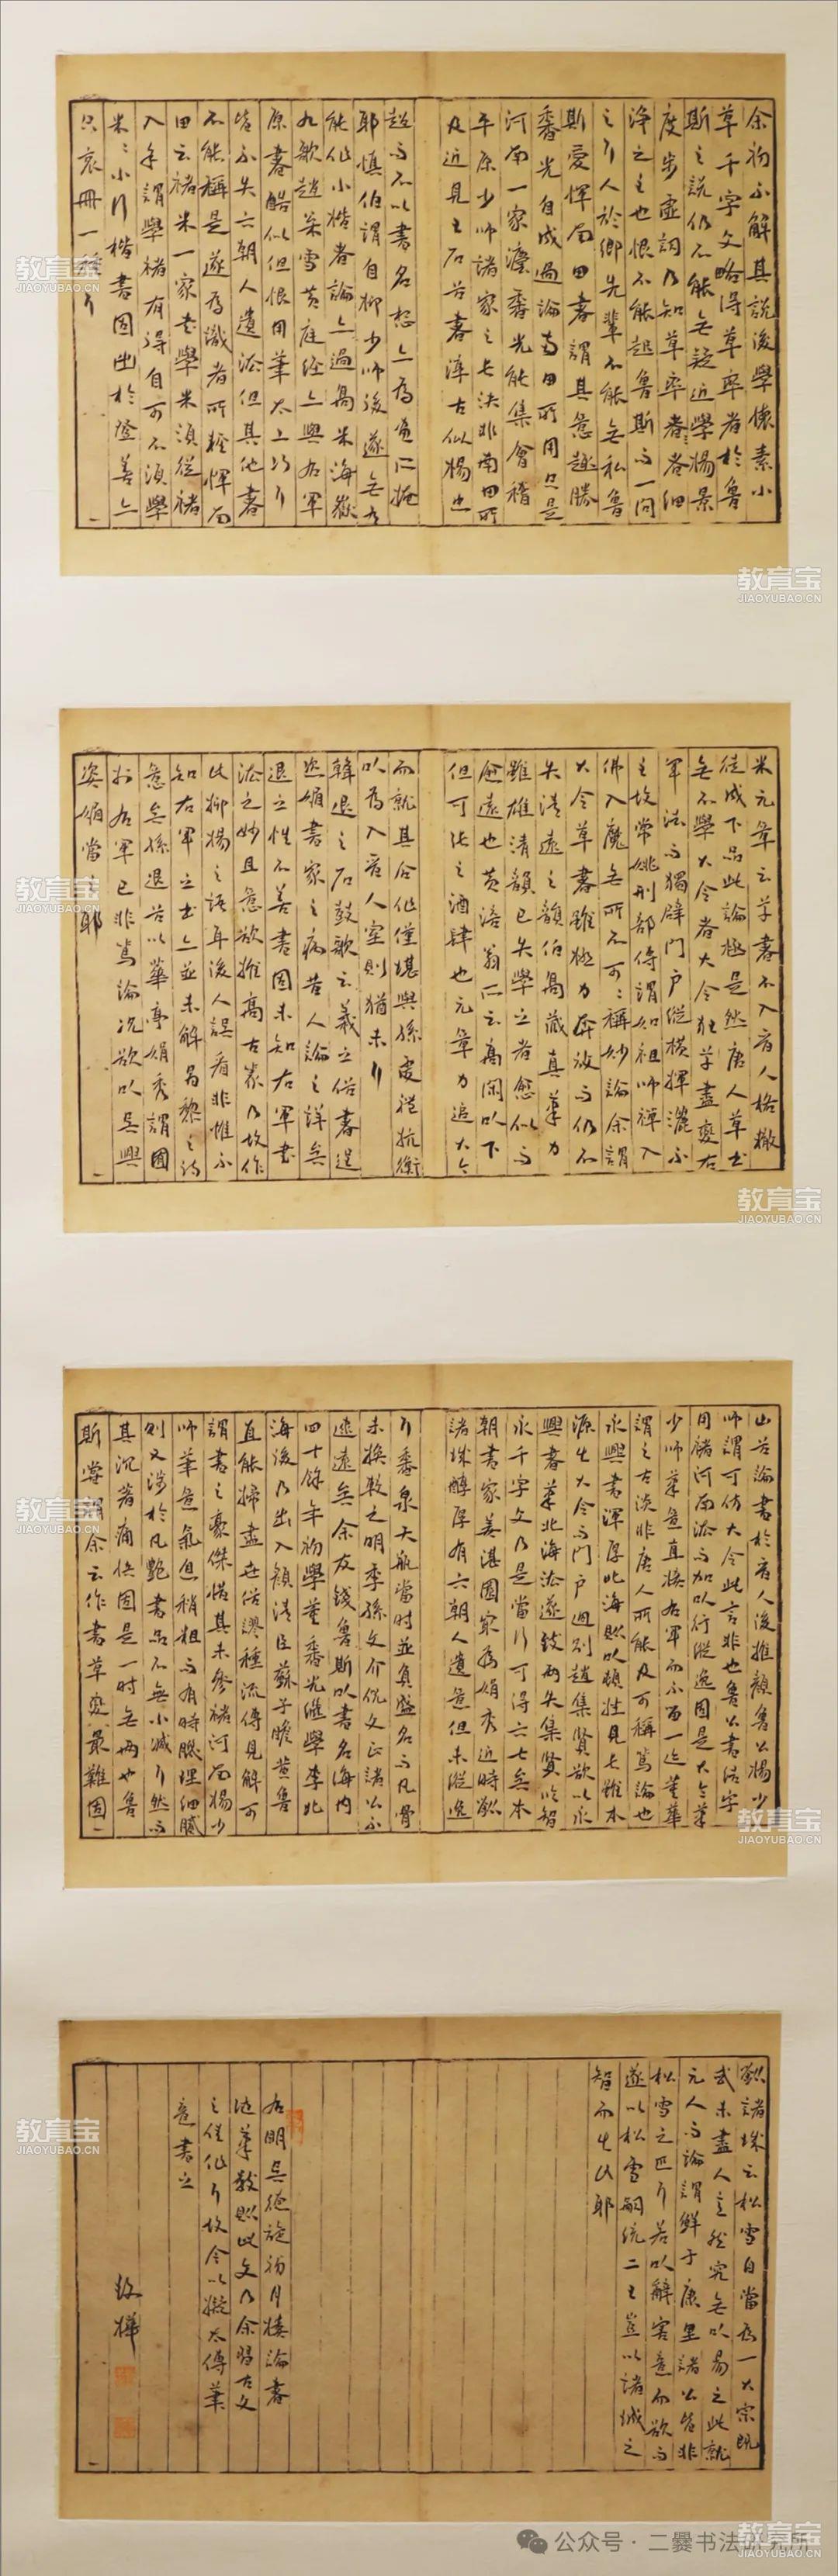 余初不解其說後學懷素小
草千字文略得草率者於魯
斯之說仍不能無疑近學楊景
度步虛詞乃知草率者者細
淨之至也恨不能起魯斯而一問
之行人於鄉先輩不能無私魯
斯愛惲南田書謂其意趣勝
香光自成過論南田所用只是
河南一家濟香光能集會稽
平原少師諸家之長決非南田所
及近見王石谷書淳古似楊也
趙而不以書名想亦為畫所掩
耶慎伯謂自柳少師後遂無有
能作小楷者論亦過高米海嶽
九歌趙吳雪黃庭經亦與右軍
原書酷似但恨用筆太上巧行
皆不失六朝人遺法但其他書
不能稱是遂為識者所輕惲南
田云褚米一家書學米須從褚
入手謂學褚有得自可不須學
米米小行楷書固出於登善亦
只哀冊一種行
米元章云草書不入晉人格轍
徒成下品此論極是然唐人草書
無不學大令者大令狂草盡變右
軍法而獨闢門戶縱橫揮灑不
主故常姚刑部傳謂如祖師禪入
佛入魔無所不可可稱妙論余謂
大令草書雖極力奔放而仍不
失清遠之韻伯高藏真筆力
雖雄清韻已失學之者愈似而
愈遠也黃涪翁所云高閑以下
但可張之酒肆也元章力追大令
而就其合作僅堪與孫虔禮抗衡
以為入晉人室則猶未行
韓退之石鼓歌云羲之俗書逞
姿媚書家之病昔人論之詳矣
退之性不善書固未知右軍書
法之妙且意欲推高古篆乃故作
此抑揚之語耳後人誤看非惟不
知右軍之書亦並未解昌黎之詩
意矣孫退谷以華亭娟秀謂固
於右軍已非篤論況欲以吳興
姿媚當之耶
山谷論書於晉人後推顏魯公楊少
師謂可仿大令此言非也魯公書活字
用褚河南法而加以行縱逸固是大令筆
少師筆意直接右軍而不西一跡董華
謂之古淡非唐人所能及可稱篤論也
永興書渾厚北海則以顏性見長雖本
源出大令而門戶迥別趙集賢欲以永
興書筆北海法遂致兩失集賢臨智
永千字文乃是當行可得六七矣本
朝書家姜湛園最為娟秀近時歙
諸城醇厚有六朝人遺意但未縱逸
行香泉大瓶當時並負盛名而凡骨
未換較之明季孫文介倪文正諸公不
逮遠矣余友錢魯斯以書名海內
四十餘年初學董香光繼學李北
海後乃出入顏清臣蘇子瞻黃魯
直能掃盡世俗謬種流傳見解可
謂書之豪傑惜其未參褚河南楊少
師筆意氣息稍粗而有時膩理細膩
則又涉於凡艷書品不無小減行然而
其沉著痛快固是一時無兩也魯
斯嘗謂余云作書草率最難固一
歙諸城云松雪自當為一大宗既
武未盡人意然究無以易之此就
元人而論謂鮮于康里諸公皆非
松雪之匹行若以辭害意而欲而
遂以松雪嗣統二王豈以諸城之
智而出此耶
右明吳德旋初月樓論書
隨筆數則此文乃余習古文
之佳作行故今以擬太傅筆
意書之